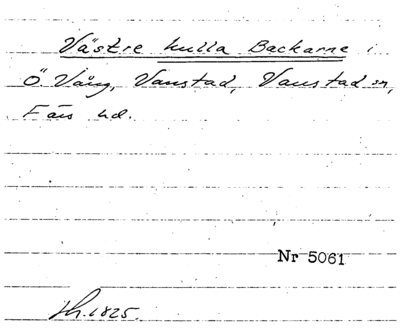 Västre kulla Backarne i
Ö. Vång, Vanstad, Vanstad sn,
Färs hd.
Nr 5061
Sk. 1825.